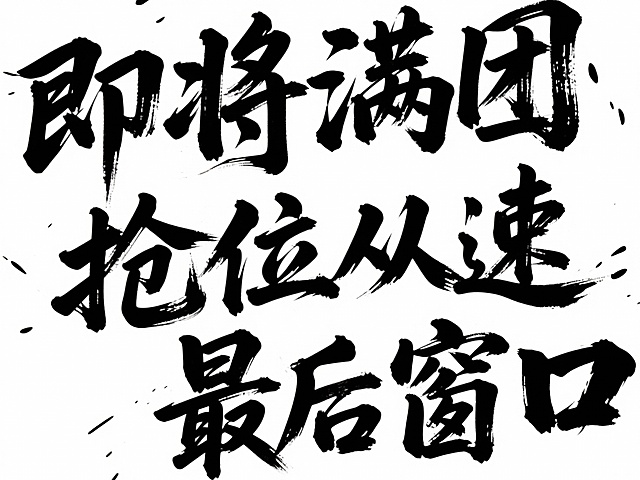 即将满团
抢位从速
最后窗口